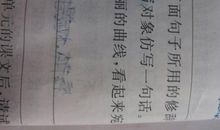 面句子所用的修辞
对象仿写一句话。
丽的曲线,看起来宛
单元的课文后,尝试